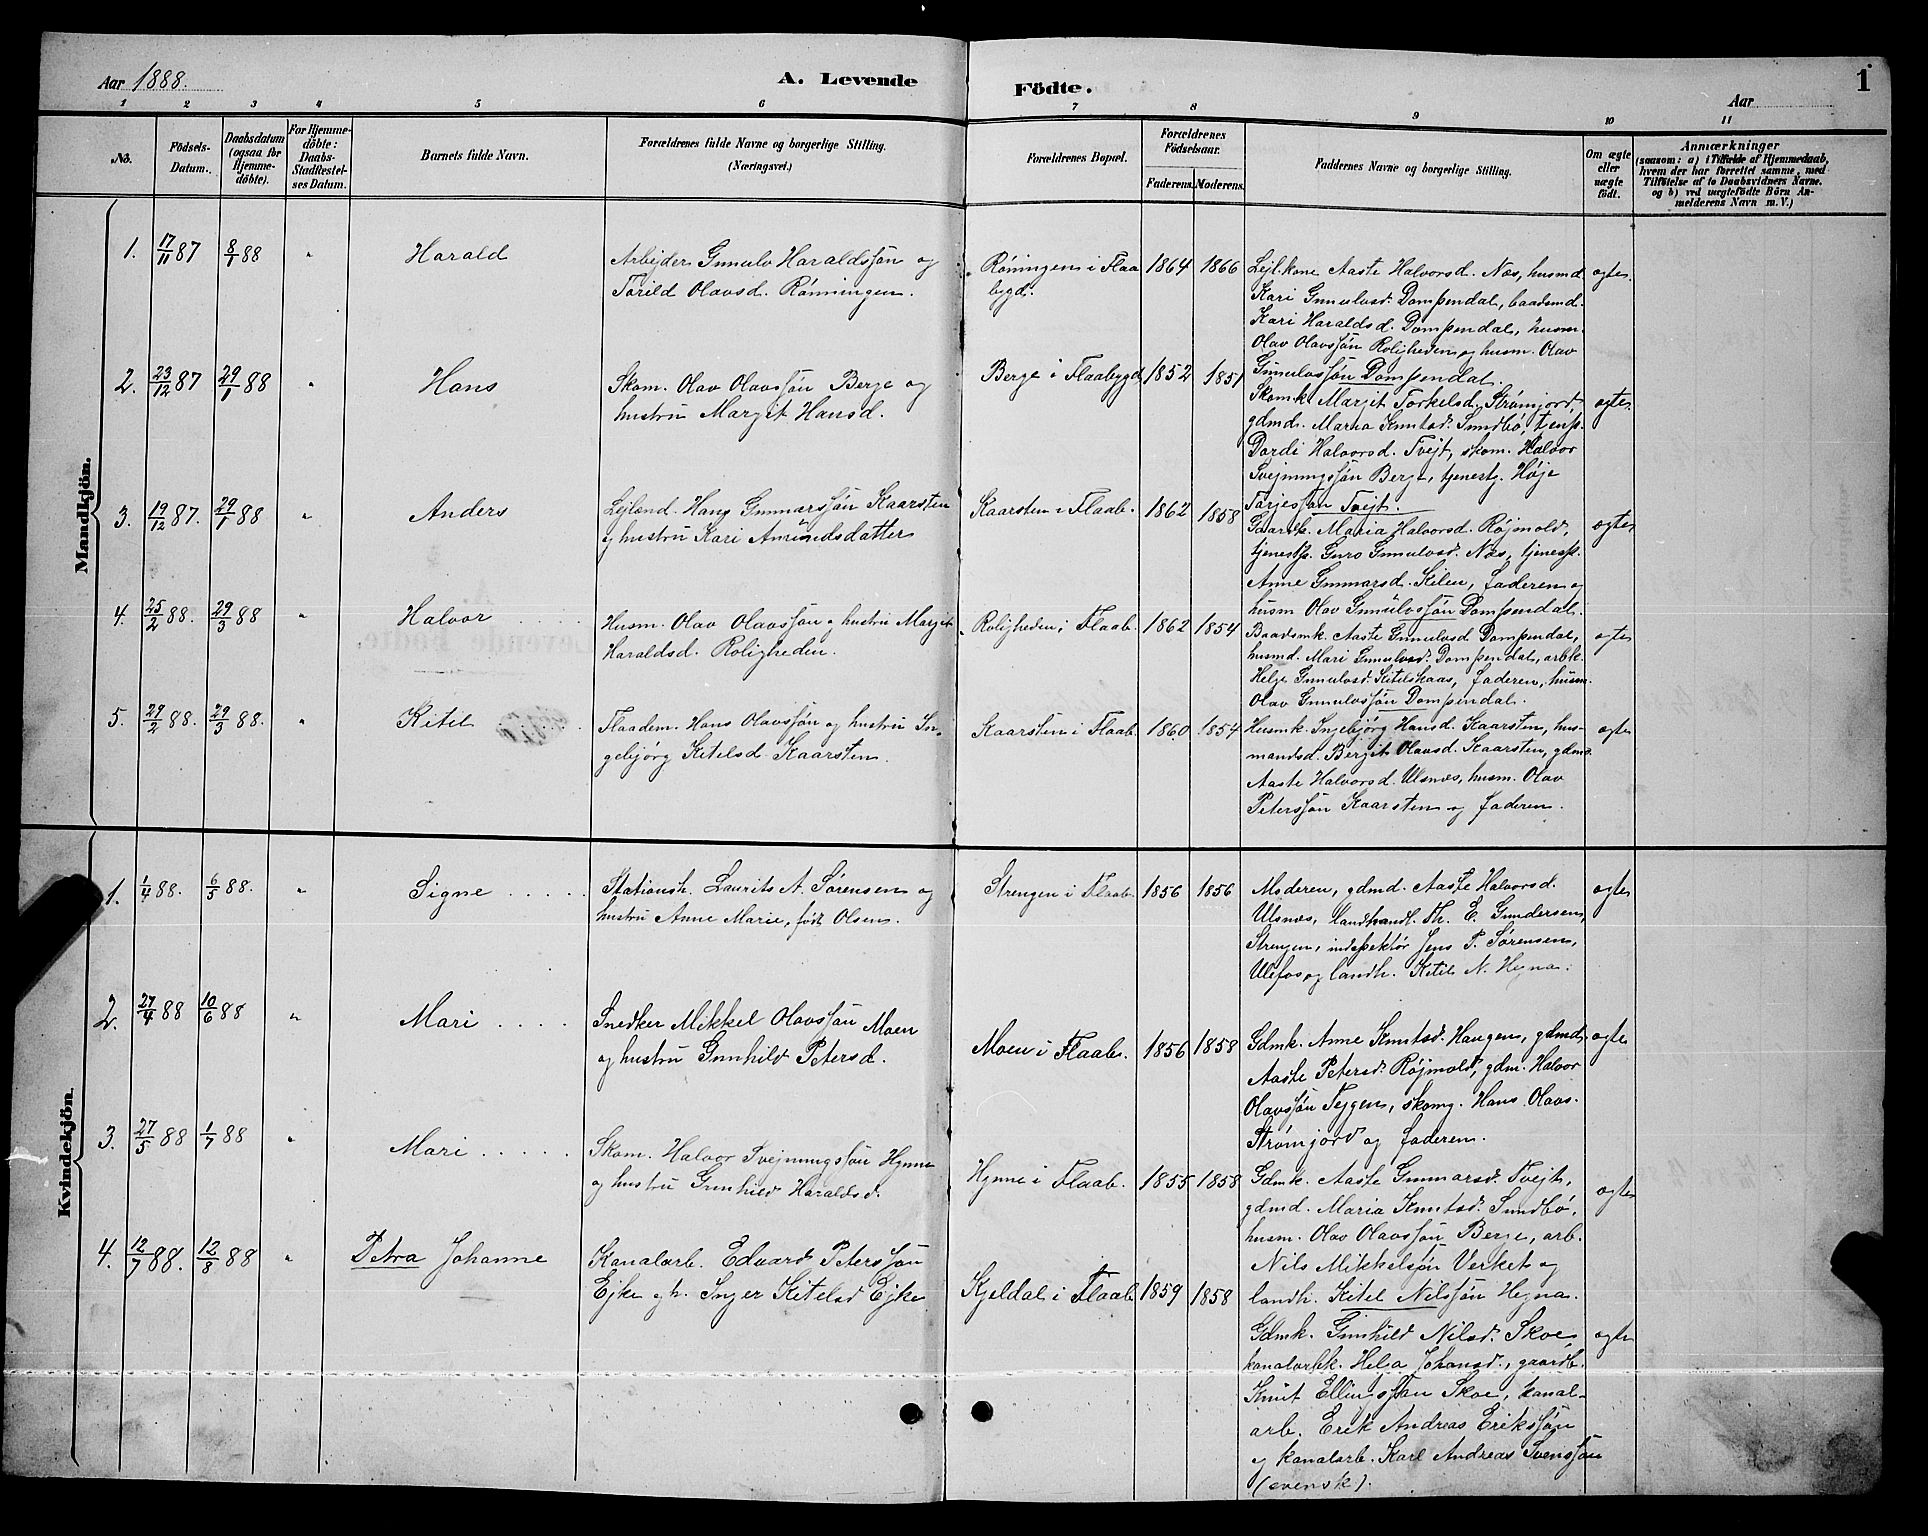 Aar 1888.
A. Levende
Födte.
Aar
1
1
2
3
4
5
6
7
8
9
10
11
No.
Födsels-
Datum.
Daabsdatum
(ogsaa for
Hjemme-
döbte).
For Hjemme-
döbte:
Daabs-
Stadfæstel-
ses Datum.
Barnets fulde Navn.
Forældrenes fulde Navne og borgerlige Stilling.
(Næringsvei.)
Forældrenes Bopæl.
Forældrenes
Födselsaar.
Faderens.
Moderens.
Faddernes Navne og borgerlige Stilling.
Om ægte
eller
uægte
födt.
Anmærkninger
(saasom: a) i Tilfælde af Hjemmedaab,
hvem der har forrettet samme, med
Tilföielse af to Daabsvidners Navne,
og b) ved uægtefödte Börn An-
melderens Navn m. V.)
Mandkjön.
1. 17/11 87 8/1 88 " Harald
Arbejder Gunulv Haraldssøn og
Torild Olavsd. Rønningen.
Røningen i Flaa
bygd.
1864 1866
Lejl.kone Aaste Halvorsd. Næs, husmd.
Kari Gunulvsd. Dompendal, baadsmd.
Kari Haraldsd. Dompendal, husm.
Olav Olavssøn Roligheden og husm. Olav
Gunulvssøn Dompendal.
ægte
2. 23/12 87 29/1 88 " Hans
Skom. Olav Olavssøn Berge og
hustru Margit Hansd.
Berge i Flaabygd
1852 1851
Skomk. Margit Torkelsd. Strømjord,
gdmd. Maria Knutsd. Sundbø, tjensp.
Dordi Halvorsd. Tvejt, skom. Halvor
Svejnungssøn Berge, tjenestg. Høje
Tarjessøn Tvejt.
ægte
3. 19/12 87. 29/1 88 " Anders
Lejlænd. Hans Gunnarssøn Kaarsten
og hustru Kari Amundsdatter
Kaarsten i Flaab.
1862 1858
Gaardk. Maria Halvorsd. Røjmold,
tjenestp. Guro Gunulvsd. Næs, tjenesp.
Anne Gunnarsd. Kilen, faderen og
husm Olav Gunulvssøn Dompendal.
ægte
4. 25/2 88. 29/3 88 " Halvor
Husm. Olav Olavssøn og hustru Margit
Haraldsd. Roligheden.
Roligheden i Flaab.
1862 1854
Baadsmk. Aaste Gunulvsd Dompendal,
husmd. Mari Gunulvsd. Dompendal, arbk.
Helge Gunulvsd. Kitelskaas, faderen, husm.
Olav Gunulvssøn Dompendal.
ægte
5. 29/2 88. 29/3 88. " Kitil
Flaadem. Hans Olavssøn og hustru In-
gebjørg Kitelsd. Kaarsten.
Kaarsten i Flaab.
1860 1854
Husmk. Ingebjørg Hansd. Kaarsten, hus-
mandsd. Bergit Olavsd. Kaarsten, gdmd.
Aaste Halvorsd. Ulsnæs, husm. Olav
Peterssøn Kaarsten og faderen.
ægte
Kvindekjön.
1. 1/4 88. 6/5 88. " Signe
Stationsh. Laurits A. Sørensen og
hustru Anne Marie, født Olsen.
Strengen i Flaab.
1856 1856
Moderen, gdmd. Aaste Halvorsd.
Ulsnæs, landhandl. Th. E. Gundersen,
Strengen, indspektør Jens P. Sørensen,
Ulefos og landh. Kitil N. Hegna.
ægte
2. 27/4 88 10/6 88 " Mari
Snedker Mikkel Olavssøn Moen
og hustru Gunhild Petersd.
Moen i Flaab.
1856 1858
Gdmk. Anne Knutsd. Haugen, gdmd.
Aaste Petersd. Røjmold, gdm. Halvor
Olavssøn Tejgen, skomg. Hans Olavs.
Strømjord og faderen.
ægte
3. 27/5 88 1/7 88 " Mari
Skom. Halvor Svejnungssøn Hynne
og hustru Gunhild Haraldsd.
Hynne i Flaab.
1855 1858
Gdmk. Aaste Gunnarsd. Tvejt,
gdmd. Maria Knutsd. Sundbø,
husm. Olav Olavssøn Berge, arb.
Nils Mikkelsøn Verket og
landh. Kitel Nilssøn Hegna.
ægte
4. 12/7 88. 12/8 88 " Petra Johanne
Kanalarb. Edvard Peterssøn
Ejke og h. Inger Kitelsd Ejke
Kjeldal i Flaab
1859 1858
Gdmk. Gunhild Nilsd. Skoe,
kanalarbk. Helga Johansd., gaardb.
Knut Ellingssøn Skoe, kanal-
arb. Erik Andreas Erikssøn
og kanalarb. Karl Andreas Svenssøn
(svensk).
ægte